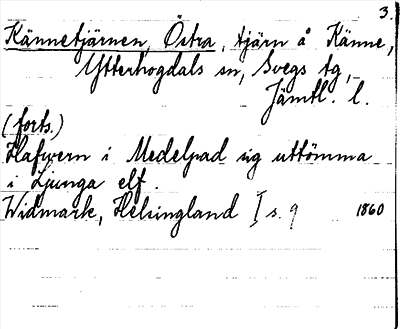 3.
Kännetjärnen, Östra, tjärn å Känne,
Ytterhogdals sn, Svegs tg,
Jämtl. l.
(forts.)
Hafwern i Medelpad sig uttömma
i Ljunga elf.
Widmark, Helsingland I s. 9 1860